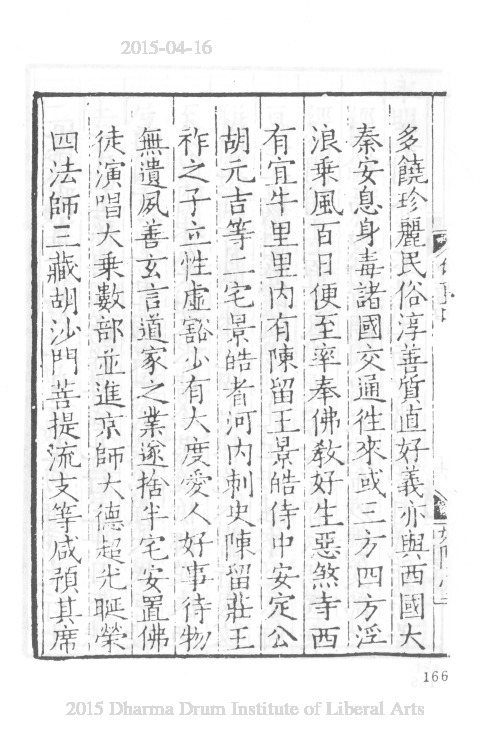 2015-04-16
多饒珍麗民俗淳善質直好義亦與西國大
秦安息身毒諸國交通徃來或三方四方浮
浪乗風百日便至率奉佛教好生惡煞寺西
有宜牛里里内有陳留王景皓侍中安定公
胡元吉等二宅景皓者河内刺史陳留莊王
祚之子立性虚豁少有大度愛人好事待物
無遺夙善玄言道家之業遂捨半宅安置佛
徒演唱大乗數部並進京師大德超光㫝榮
四法師三藏胡沙門菩提流支等咸預其席
166
2015 Dharma Drum Institute of Liberal Arts